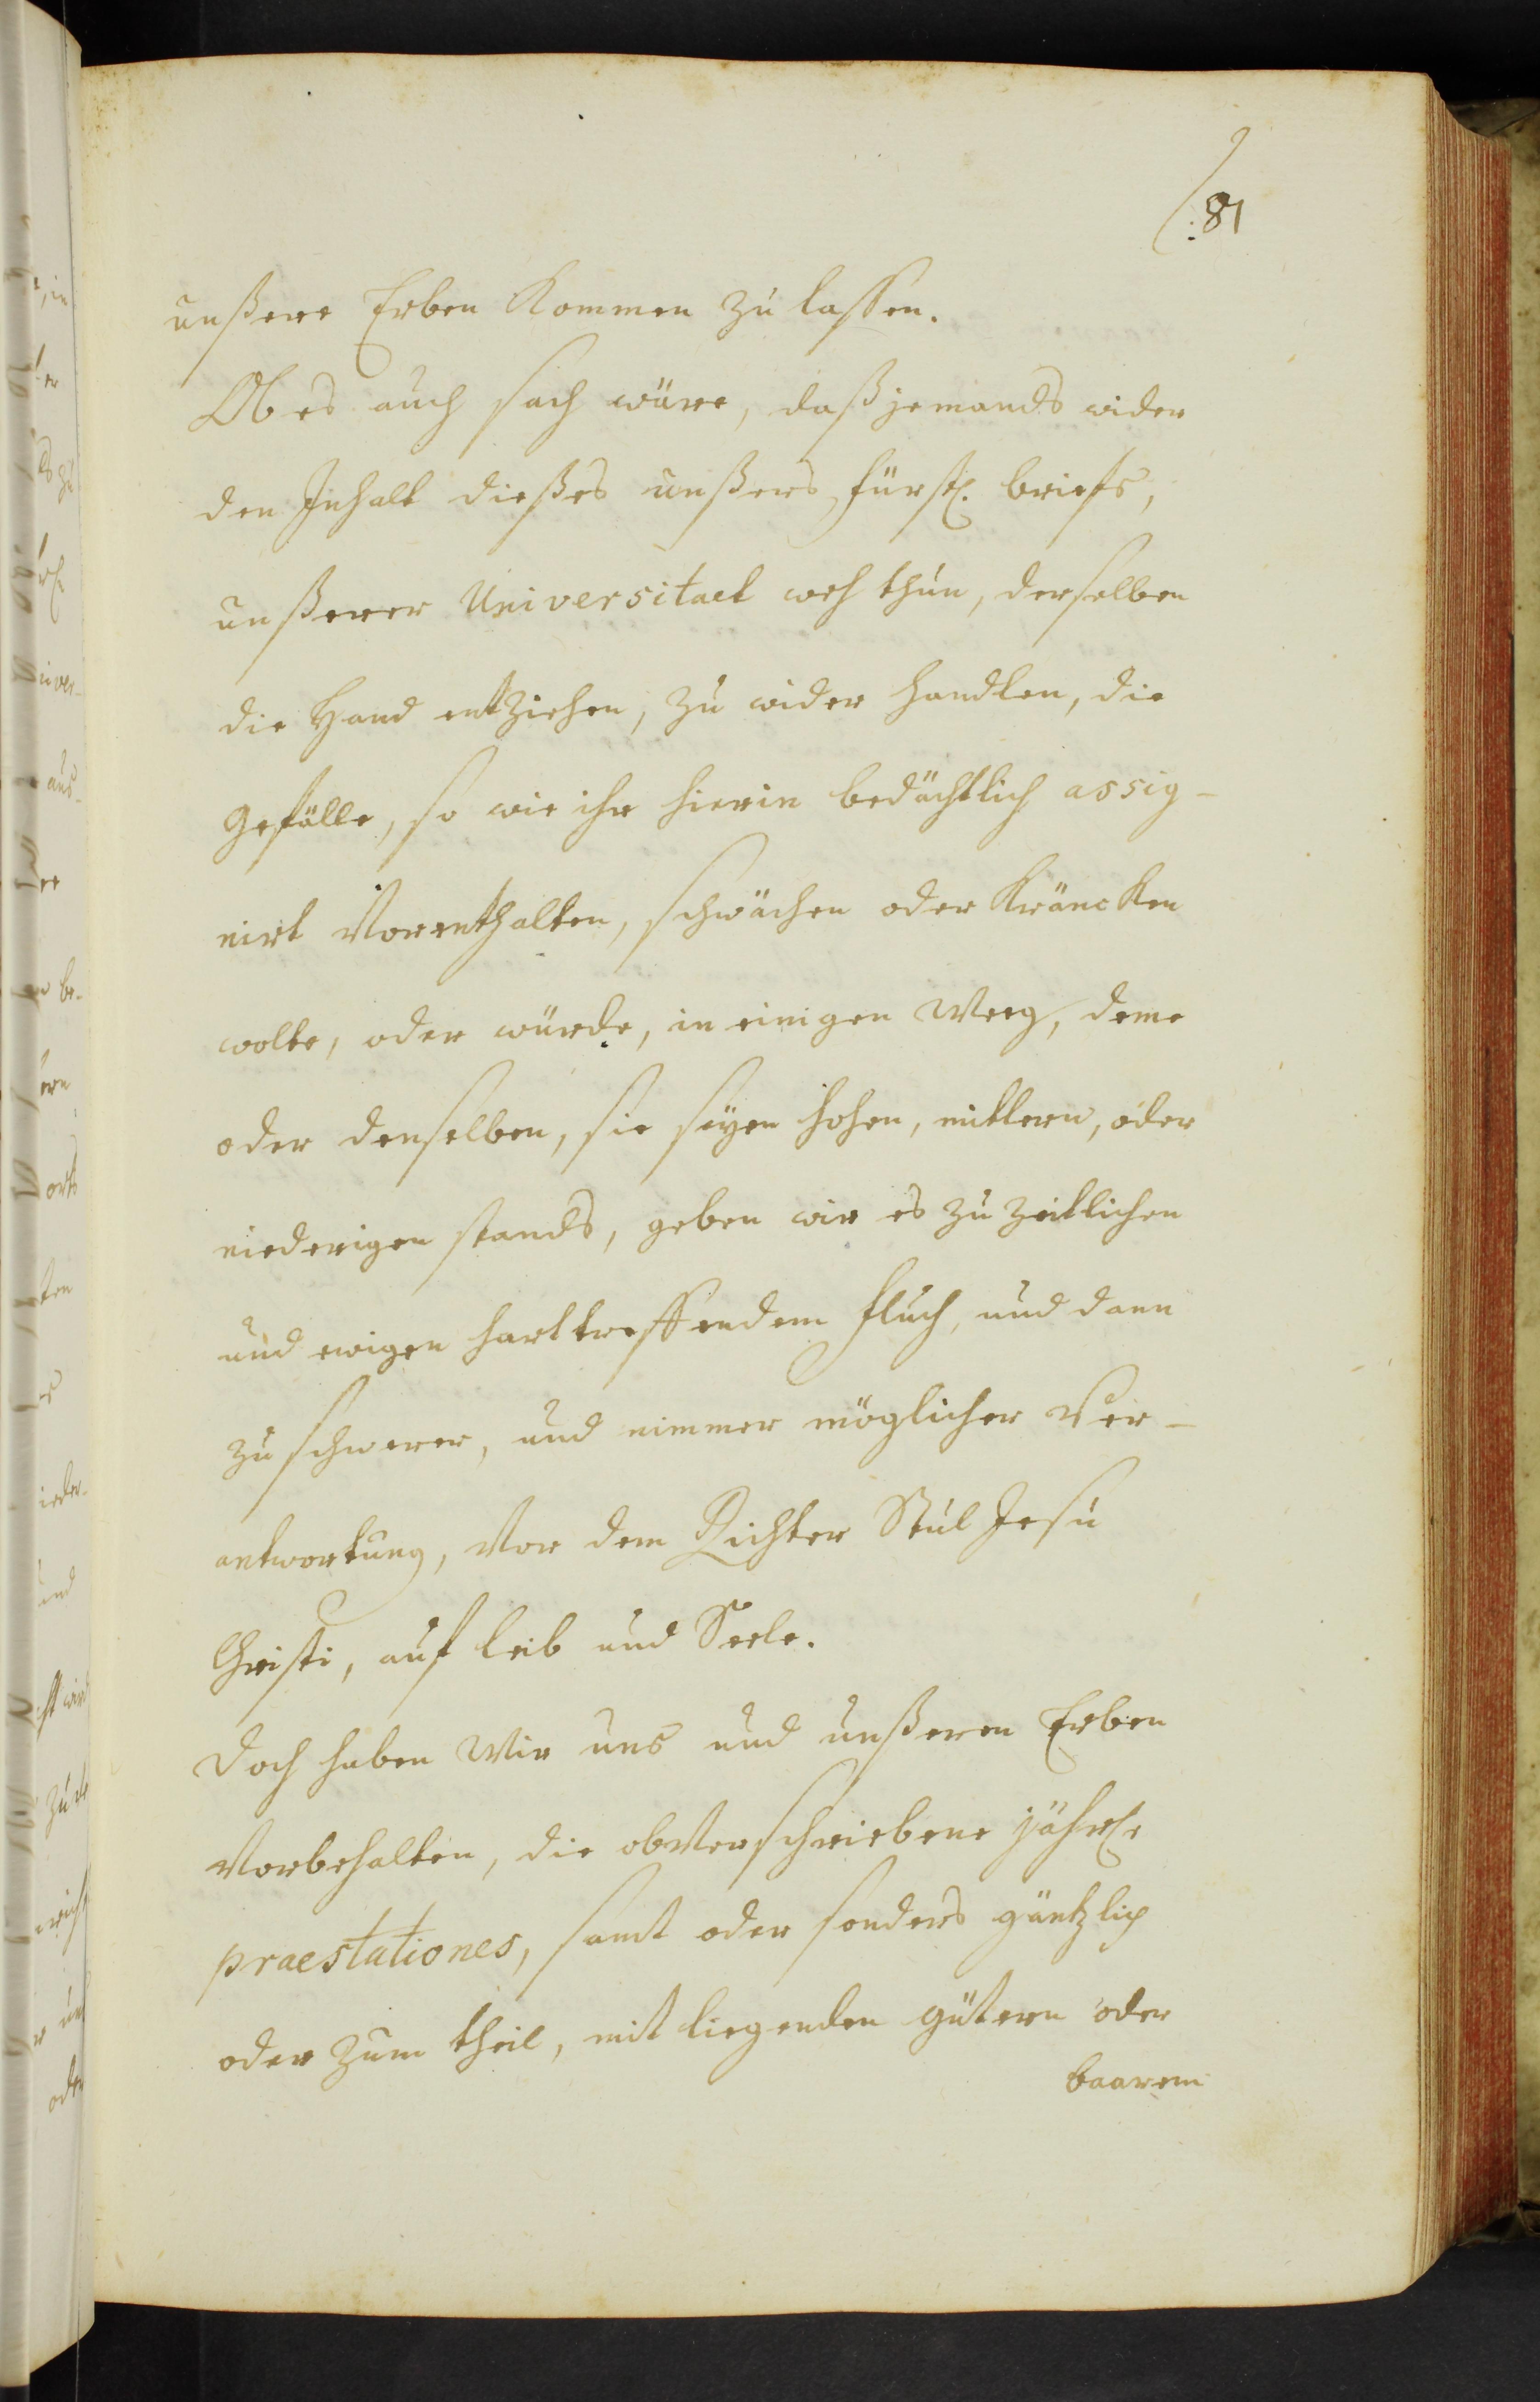 81
unßere Erben Kommen zu lassen.
Ob es auch sach wäre, daß jemands wider
den Inhalt dießes unßers fürstl. briefs,
unßerer Universitaet weh thun, derselben
die Hand entziehen, zu wider handlen, die
Gefälle, so wie ihr hierin bedächtlich assig-
nirt Vorenthalten, schwächen oder Kräncken
wolte, oder würde, in einigen Weeg, deme
oder denselben, sie seyen hohen, mittlern, oder
niederigen stands, geben wir es zu zeitlichen
und ewigen harttreffendem fluch, und dann
zu schwerer, und nimmer möglicher Ver-
antwortung, Vor dem Richter Stul Jesu
Christi, auf leib und Seele.
Doch haben Wir uns und unßeren Erben
Vorbehalten, die obverschriebene jährl.
praestationes, samt oder sonders gäntzlich
oder zum theil, mit liegenden gütern oder
baarem